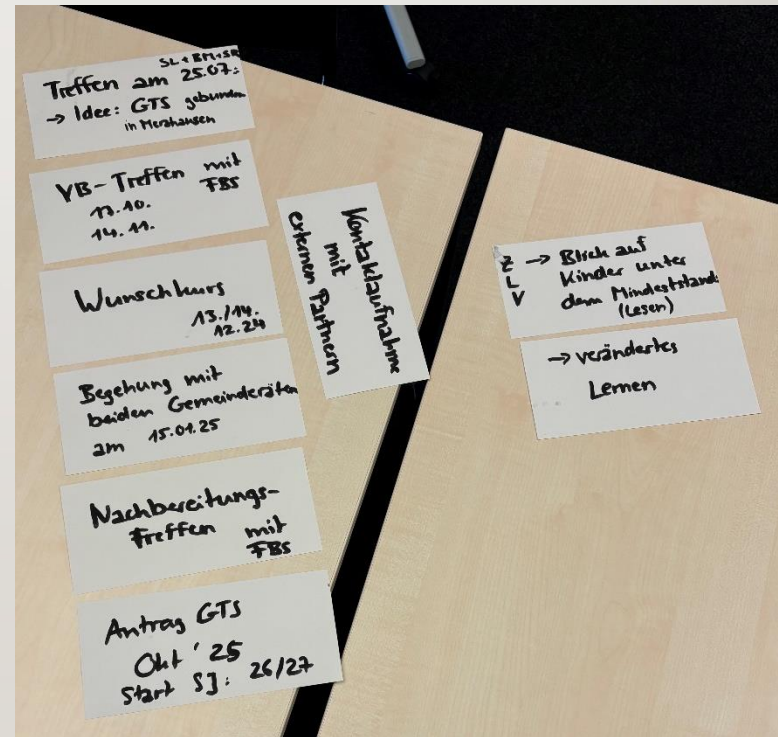 SL + BM + SR
Treffen am 25.07.:
→ Idee: GTS gebunden
in Merzhausen
VB-Treffen mit
FBS
17.10.
14.11.
Wunschkurs
13./14.
12.24
Begehung mit
beiden Gemeinderäten
am 15.01.25
Nachbereitungs-
treffen mit
FBS
Antrag GTS
Okt '25
Start SJ: 26/27
Kontaktaufnahme
mit
externen Partnern
Z → Blick auf
L Kinder unter
V dem Mindeststand.
(Lesen)
→ verändertes
Lernen